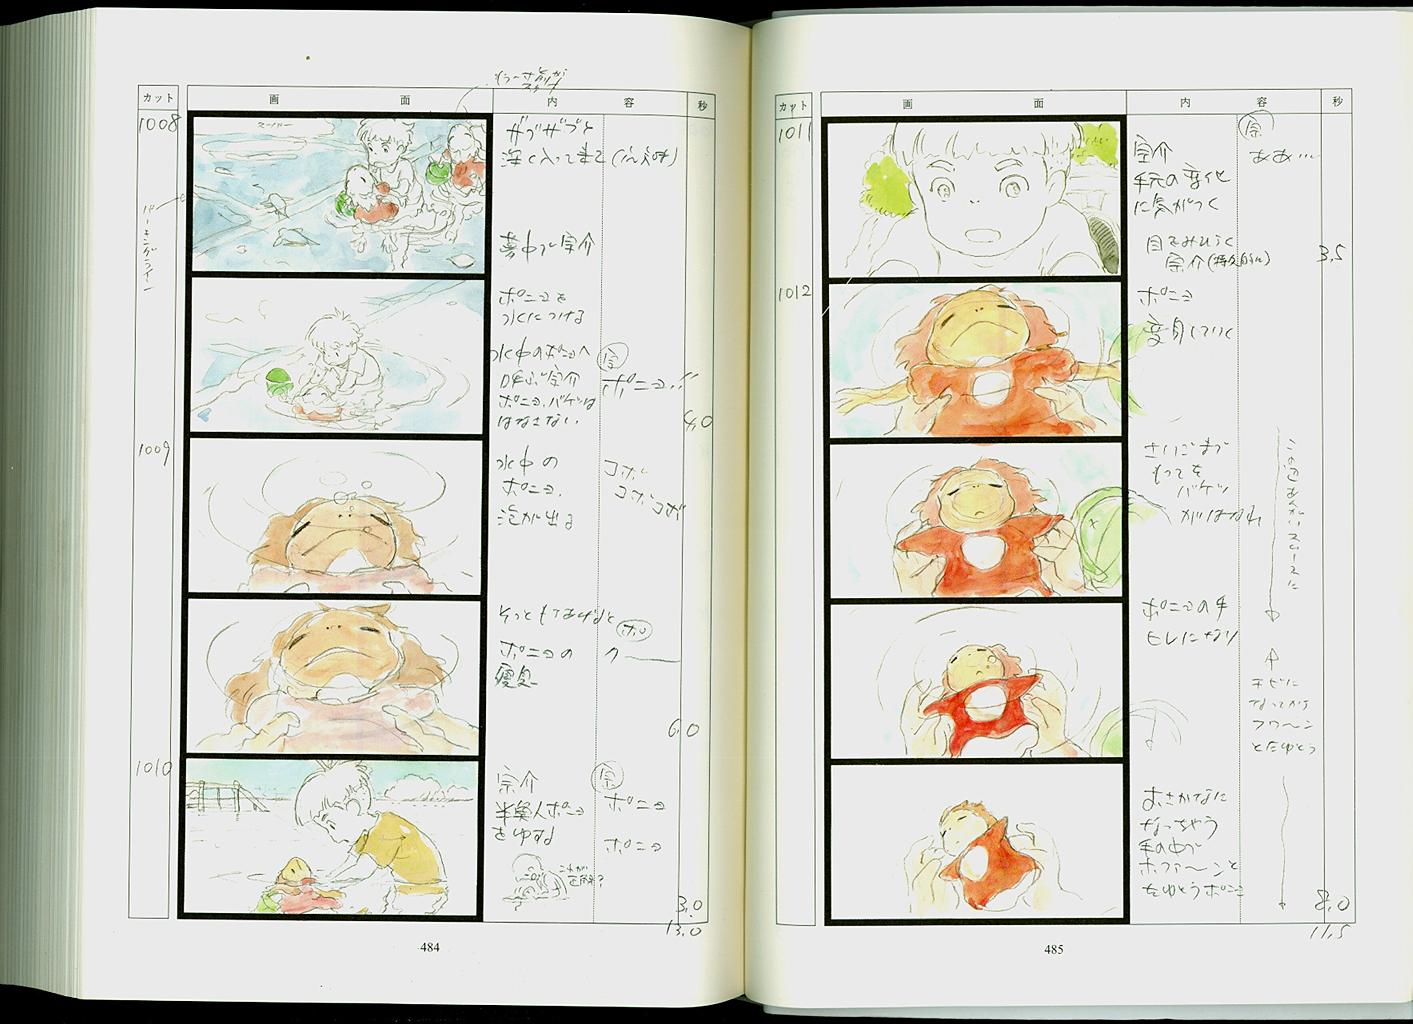 カット 画面 内容 秒
1008
ザブザブと
深く入って来て
夢中で宗介
パーキングライン
ポニョを
水につける
水中のポニョへ
呼ぶ宗介
ポニョ、バケツは
はなさない
宗
ポニョ!!
4.0
1009
水中の
ポニョ、
泡が出る
コポ
コポコポ
そっともちあげると
ポニョの
寝息
ポ
クー
6.0
1010
宗介
半魚人ポニョ
をゆする
これが
正解?
宗
ポニョ
ポニョ
3.0
13.0
484
カット 画面 内容 秒
1011
宗介
手元の変化
に気がつく
目をみひらく
宗介
宗
ああ…
3.5
1012
ポニョ
変身していく
さいごまで
もってた
バケツ
がはなれ
この辺あんがいスムースに
ポニョの手
ヒレになり
チビに
なってから
フワ〜ン
とただよう
おさかなに
なっちゃう
手の中で
ホファ〜ンと
ただようポニョ
8.0
11.5
485